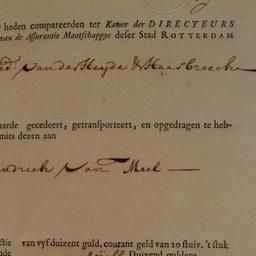 heden compareerden ter Kamer der DIRECTEURS
van de Assurantie Maatschappye deser Stad ROTTERDAM
van der Heyde & Haasbroecke
aarde gecedeert, getransporteert, en opgedragen te heb-
mits dezen aan
ndrick van Meel —
ctie van vyf duizent guld. courant geld van 20 stuiv. 't stuk
Duizend guldens